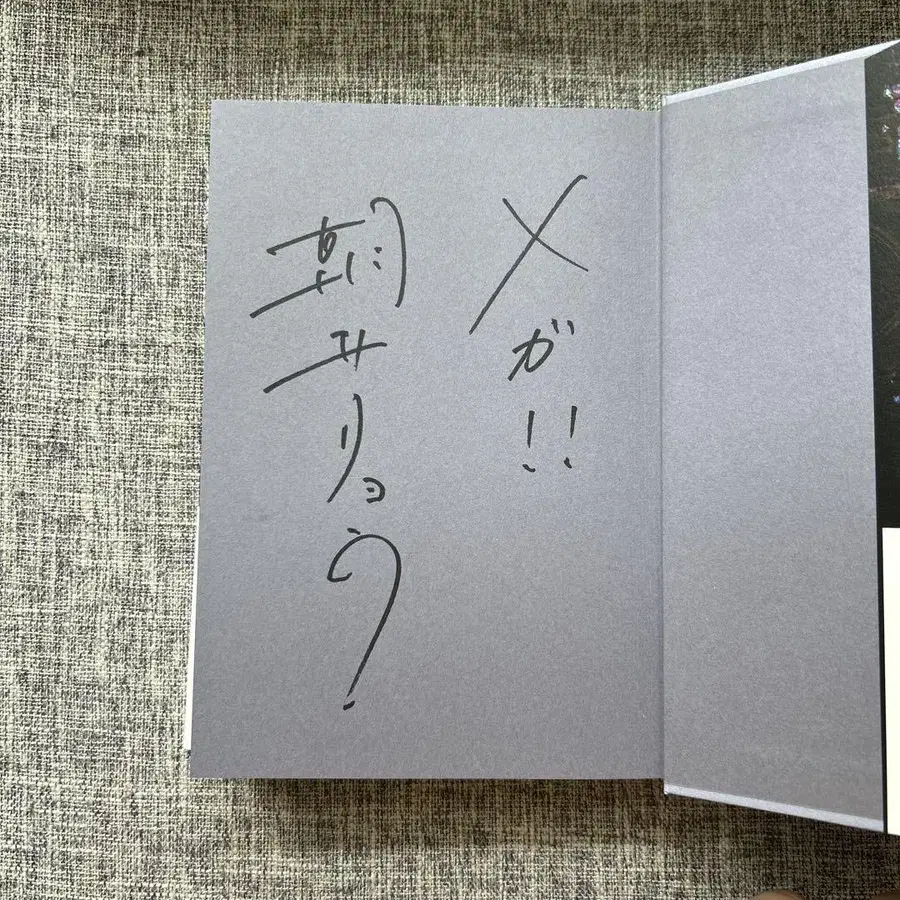 メガ!!
朝井リョウ